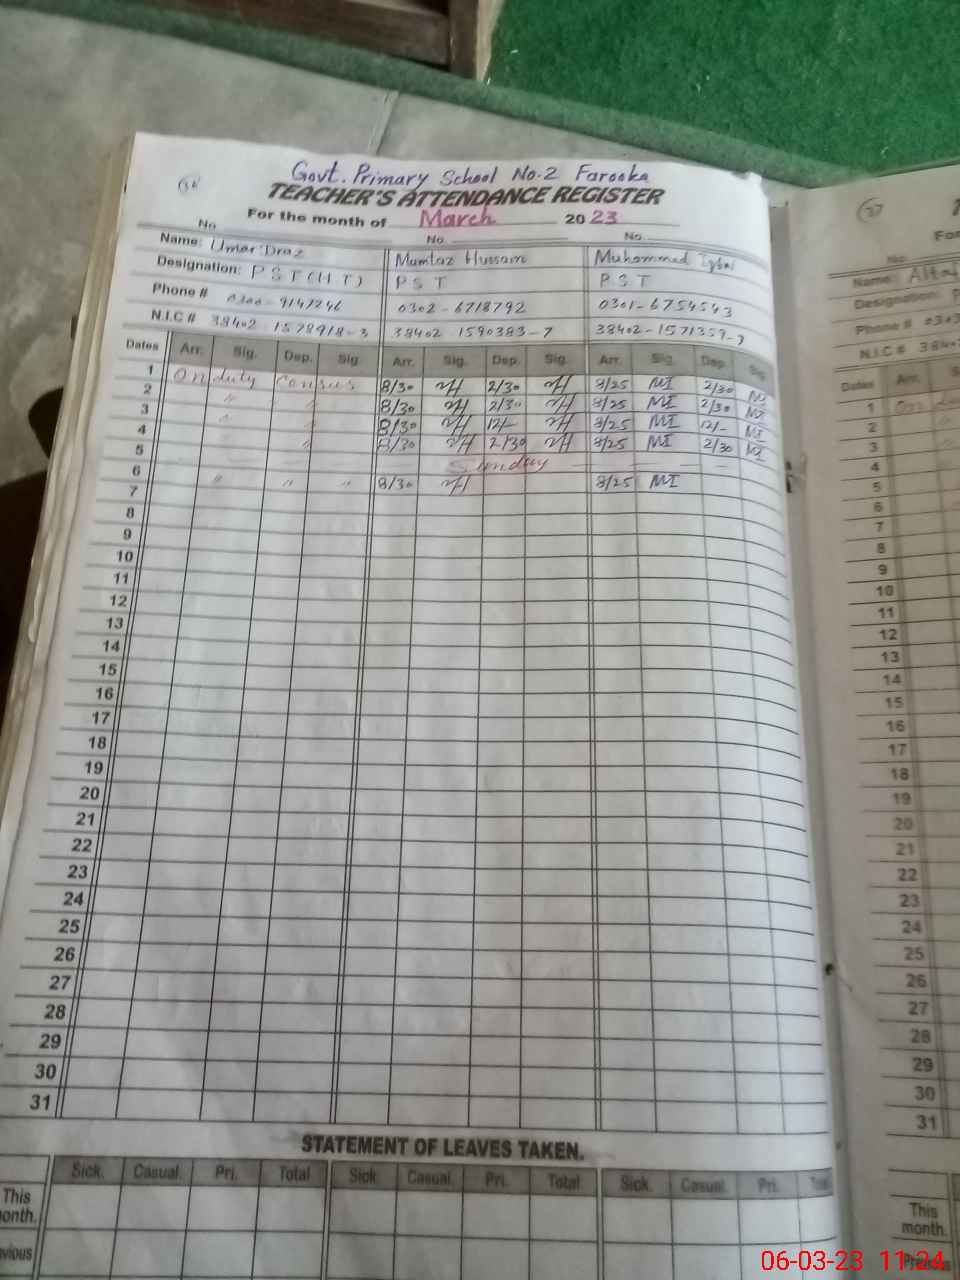 36
Govt. Primary School No-2 Farooka
TEACHER'S ATTENDANCE REGISTER
For the month of March 2023
No. No. No.
Name: Umar Draz Mumtaz Hussain Muhammad Iqbal
Designation: P S T (H T) P S T P S T
Phone # 0300-9147246 0302-6718792 0301-6754543
N.I.C # 38402-1578918-3 38402 1590383-7 38402-1571359-7
Dates Arr. Sig. Dep. Sig. Arr. Sig. Dep. Sig. Arr. Sig. Dep. Sig.
1 On duty Census 8/30 2/30 8/25 MI 2/30 MI
2 " " 8/30 2/30 8/25 MI 2/30 MI
3 " " 8/30 12/- 8/25 MI 12/- MI
4 " 8/30 2/30 8/25 MI 2/30 MI
5 Sunday
6 " " " 8/30 8/25 MI
7
8
9
10
11
12
13
14
15
16
17
18
19
20
21
22
23
24
25
26
27
28
29
30
31
STATEMENT OF LEAVES TAKEN.
Sick. Casual. Pri. Total Sick. Casual. Pri. Total Sick. Casual. Pri. Total
This
onth.
vious
37
For
No.
Name: Altaf
Designation: P
Phone # 0303
N.I.C # 384
Dates Arr.
1 On du
2
3
4
5
6
7
8
9
10
11
12
13
14
15
16
17
18
19
20
21
22
23
24
25
26
27
28
29
30
31
This
month.
Previous
06-03-23 11:24